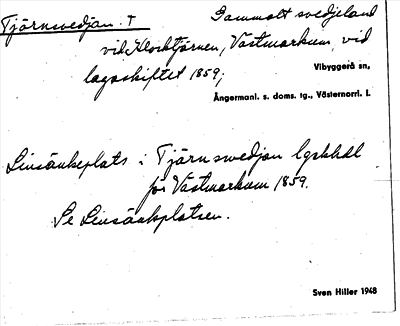 Tjärnsvedjan. T
Gammalt svedjeland
vid Klocktjärnen, Västmarkum, vid
lagaskiftet 1859;
Vibyggerå sn,
Ångermanl. s. doms. tg., Västernorrl. l.
Linsänkeplats i Tjärnsvedjan lgskhdl
för Västmarkum 1859.
Se Linsänkplatsen.
Sven Hiller 1948